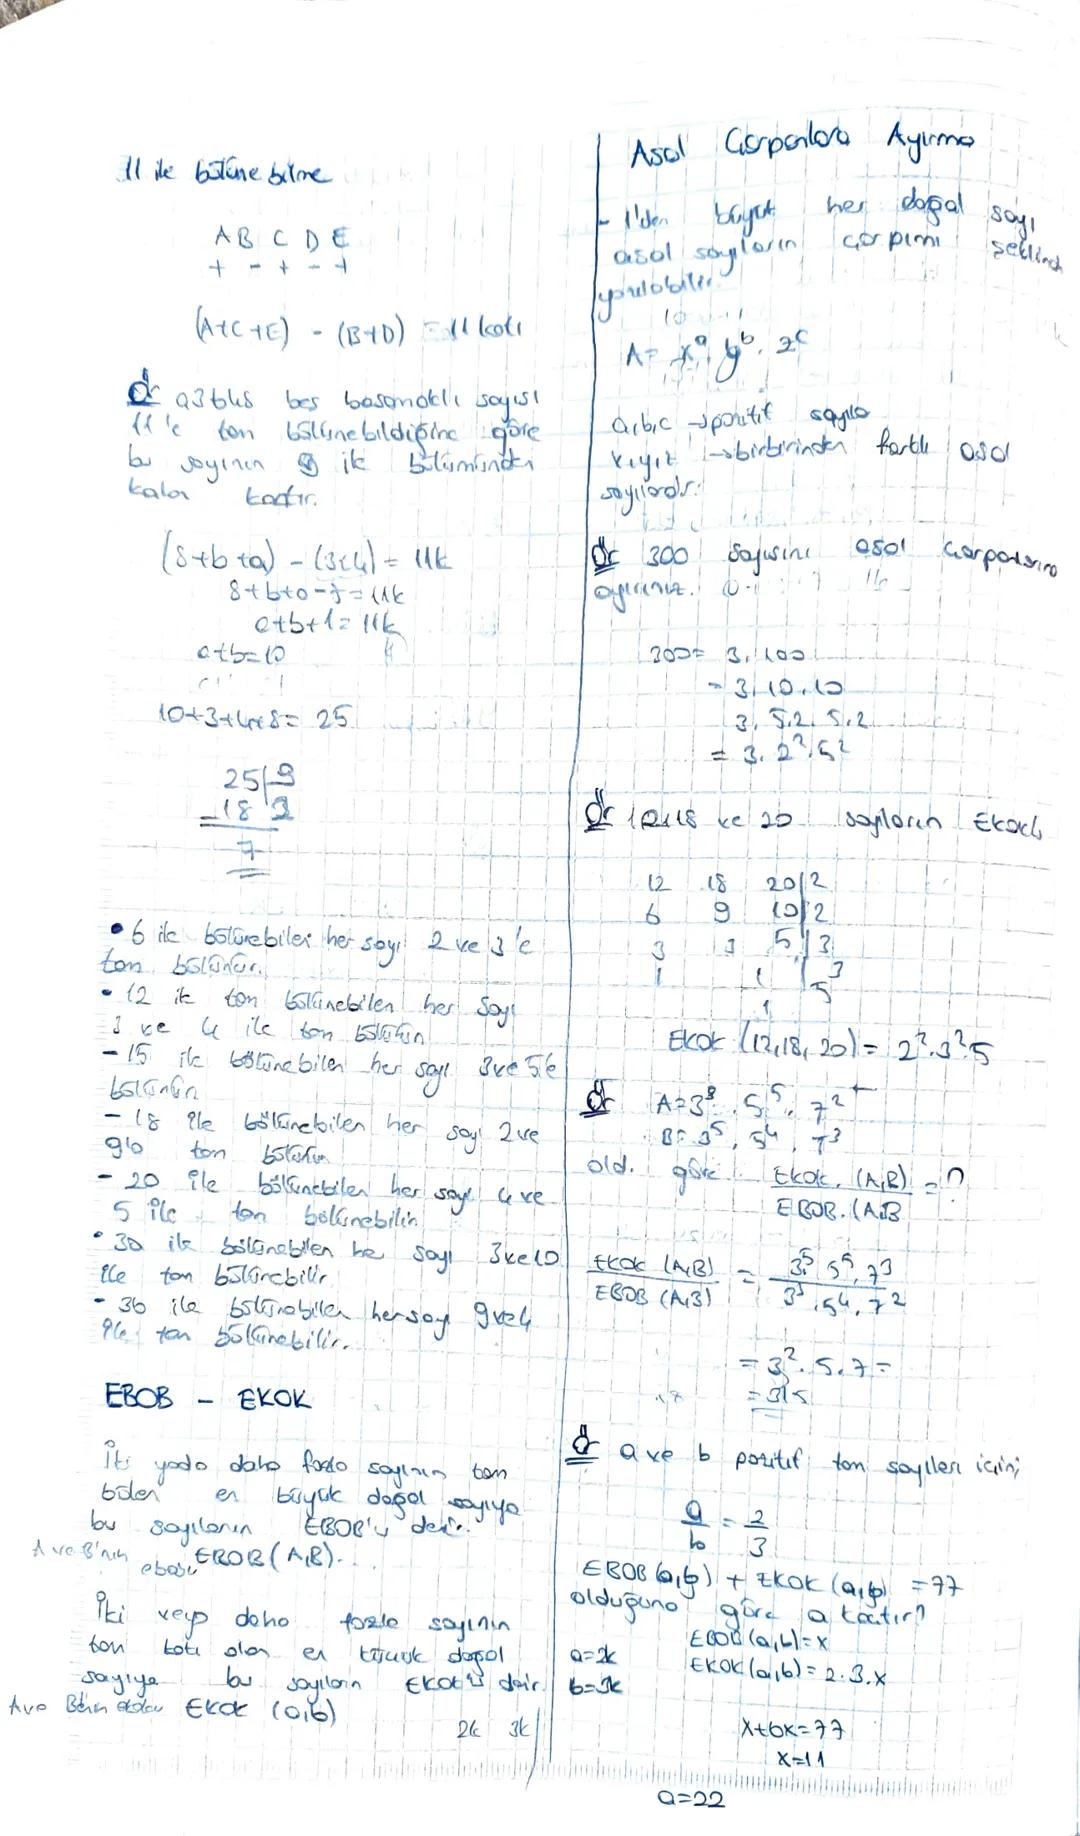 11 ile bölünebilme
A B C D E
+ - + - +
(A+C+E) - (B+D) = 11 katı
Ör a3b48 beş basamaklı sayısı
11'e tam bölünebildiğine göre
bu sayının 9 ile bölümünden
kalan kaçtır.
(8+b+a) - (3+4) = 11k
8+b+a-7=11k
a+b+1=11k
a+b=10
10+3+4+8= 25
25 | 9
-18 2
7
• 6 ile bölünebilen her sayı 2 ve 3'e
tam bölünür.
• 12 ile tam bölünebilen her sayı
3 ve 4 ile tam bölünür
- 15 ile bölünebilen her sayı 3 ve 5'e
bölünür
- 18 ile bölünebilen her sayı 2 ve
9'a tam bölünür
- 20 ile bölünebilen her sayı 4 ve
5 ile tam bölünebilir
• 30 ile bölünebilen her sayı 3 ve 10
ile tam bölünebilir
- 36 ile bölünebilen her sayı 9 ve 4
ile tam bölünebilir.
EBOB - EKOK
İki yada daha fazla sayının tam
bölen en büyük doğal sayıya
bu sayıların EBOB'u denir.
A ve B'nin ebobu EBOB(A,B)...
İki veya daha fazla sayının
tam katı olan en küçük doğal
sayıya bu sayıların EKOK'u denir.
A ve B'nin ekoku EKOK (a,b)
2k 3k
Asal Çarpanlara Ayırma
- 1'den büyük her doğal sayı
asal sayıların çarpımı şeklinde
yazılabilir.
A= x^a. y^b. z^c
a,b,c → pozitif sayılar
x,y,z → birbirinden farklı asal
sayılardır.
Ör 300 sayısını asal çarpanlarına
ayırınız.
300= 3.100
= 3.10.10
3. 5.2. 5.2
= 3. 2².5²
Ör 12,18 ve 20 sayıların EKOK'u
12 18 20 | 2
6 9 10 | 2
3 9 5 | 3
1 1 3
5
1
EKOK (12,18,20) = 2².3².5
Ör A=3⁸. 5⁵. 7²
B= 3⁵. 5⁴. 7³
old. göre EKOK. (A,B) = ?
EBOB. (A,B
EKOK (A,B) = 3⁵ 5⁵. 7³
EBOB (A,B) 3³ .5⁴. 7²
= 3². 5. 7 =
= 315
Ör a ve b pozitif tam sayıları için;
a = 2
b 3
EBOB(a,b) + EKOK (a,b) = 77
olduğuna göre a kaçtır?
EBOB (a,b)=x
a=2k EKOK (a,b) = 2.3.x
b=3k
x+6x=77
x=11
a=22